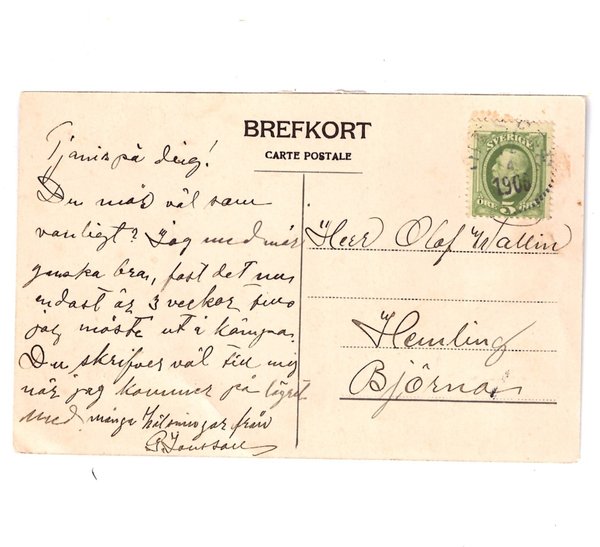 BREFKORT
CARTE POSTALE
SVERIGE
1906
ÖRE 5 ÖRE
Tjenis på deig!
Du mår väl som
vanligt? Jag med mår
ganska bra, fast det nu
endast är 3 veckor tills
jag måste ut å kämpa.
Du skrifver väl till mig
når jag kommer på lägret
med många hälsningar från
Jonsson
Herr Olof Wallin
Hemling
Björna